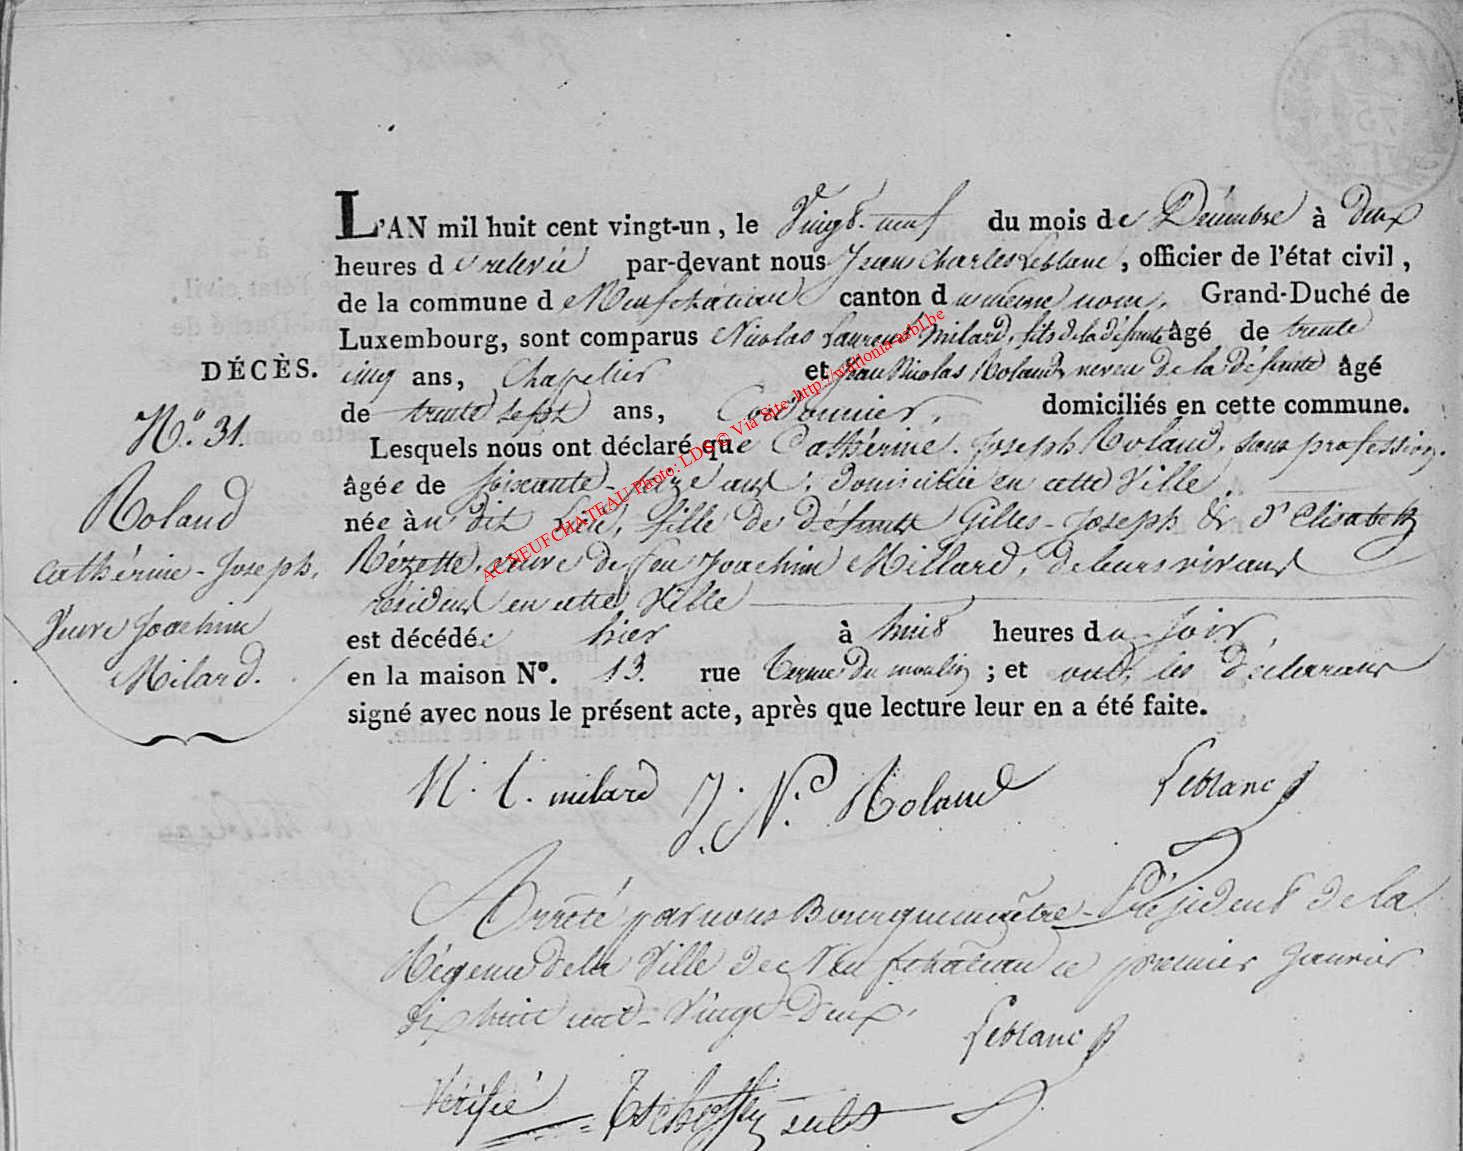 L'AN mil huit cent vingt-un, le Vingt-neuf du mois de Décembre à deux
heures de relevée par-devant nous Jean Charles Leblanc, officier de l'état civil,
de la commune de Neufchâteau canton du même nom, Grand-Duché de
Luxembourg, sont comparus Nicolas Laurent Milard, fils de la défunte âgé de trente
cinq ans, Chapelier et Jean Nicolas Roland, neveu de la défunte âgé
de trente sept ans, Cordonnier, domiciliés en cette commune.
Lesquels nous ont déclaré que Cathérine Joseph Roland, sans profession,
âgée de soixante-seize ans, domiciliée en cette Ville,
née au dit Lieu, fille de défunts Gilles-Joseph & d'Elisabeth
Rézette, veuve de feu Joachim Millard, de leurs vivans
résidens en cette Ville
est décédée hier à huit heures du soir,
en la maison N°. 13. rue Terme du moulin ; et ont, les déclarans
signé avec nous le présent acte, après que lecture leur en a été faite.
DÉCÈS.
N.° 31.
Roland
Cathérine-Joseph,
Veuve Joachim
Milard.
N. L. milard J. N. Roland Leblanc
Arrêté par nous Bourguemaître-Président de la
Régence de la Ville de Neufchâteau ce premier Janvier
dix huit cent-Vingt-Deux.
Leblanc
Vérifié
AC NEUFCHATEAU Photo: LDG © Via Site: http://wallonia-asbl.be